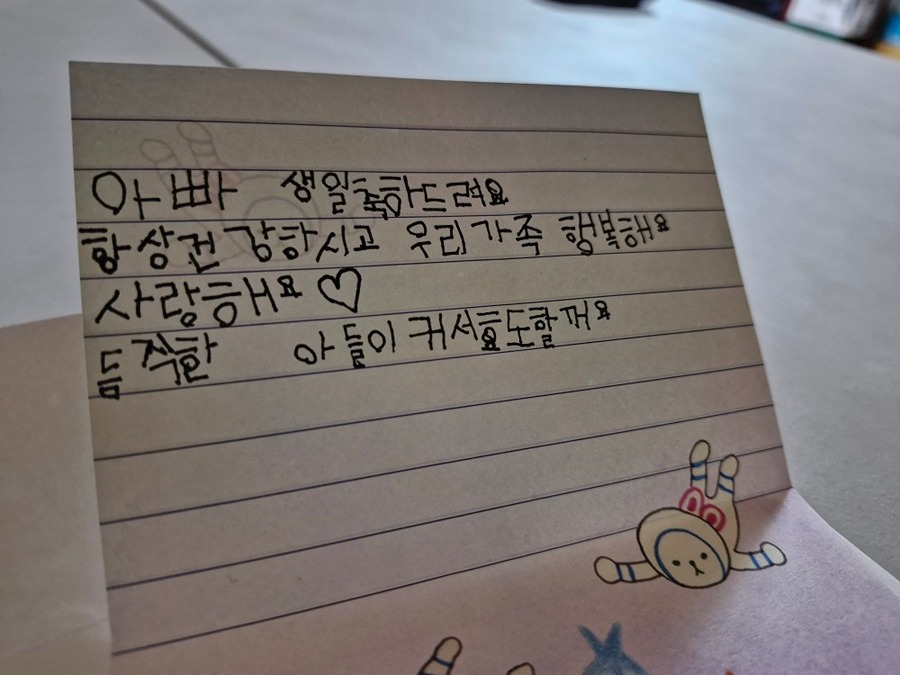 아빠 생일축하드려요
항상건강하시고 우리가족 행복해요
사랑해요 ♡
듬직한 아들이 커서효도할꺼요